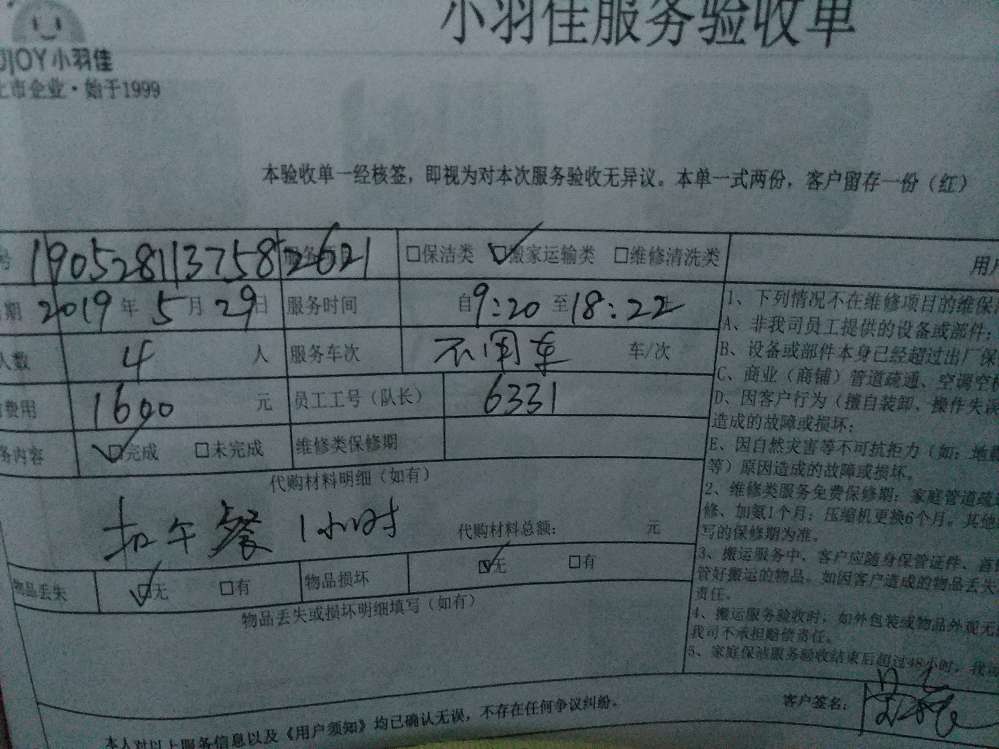 小羽佳服务验收单
JOY小羽佳
上市企业·始于1999
本验收单一经核签，即视为对本次服务验收无异议。本单一式两份，客户留存一份（红）
号 1905281137582621 服务 □保洁类 ☑搬家运输类 □维修清洗类 用户
期 2019年5月29日 服务时间 自9:20至18:22
人数 4人 服务车次 不用车 车/次
费用 1600元 员工工号（队长） 6331
务内容 ☑完成 □未完成 维修类保修期
代购材料明细（如有）
扣午餐1小时 代购材料总额： 元
物品丢失 ☑无 □有 物品损坏 ☑无 □有
物品丢失或损坏明细填写（如有）
1、下列情况不在维修项目的维保
A、非我司员工提供的设备或部件；
B、设备或部件本身已经超过出厂保
C、商业（商铺）管道疏通、空调空
D、因客户行为（擅自装卸、操作失误
造成的故障或损坏；
E、因自然灾害等不可抗拒力（如：地
等）原因造成的故障或损坏。
2、维修类服务免费保修期：家庭管道疏
修、加氨1个月；压缩机更换6个月。其他
写的保修期为准。
3、搬运服务中，客户应随身保管证件、首
管好搬运的物品。如因客户造成的物品丢失
责任。
4、搬运服务验收时，如外包装或物品外观无
我司不承担赔偿责任。
5、家庭保洁服务验收结束后超过48小时，我
客户签名：
本人对以上服务信息以及《用户须知》均已确认无误，不存在任何争议纠纷。